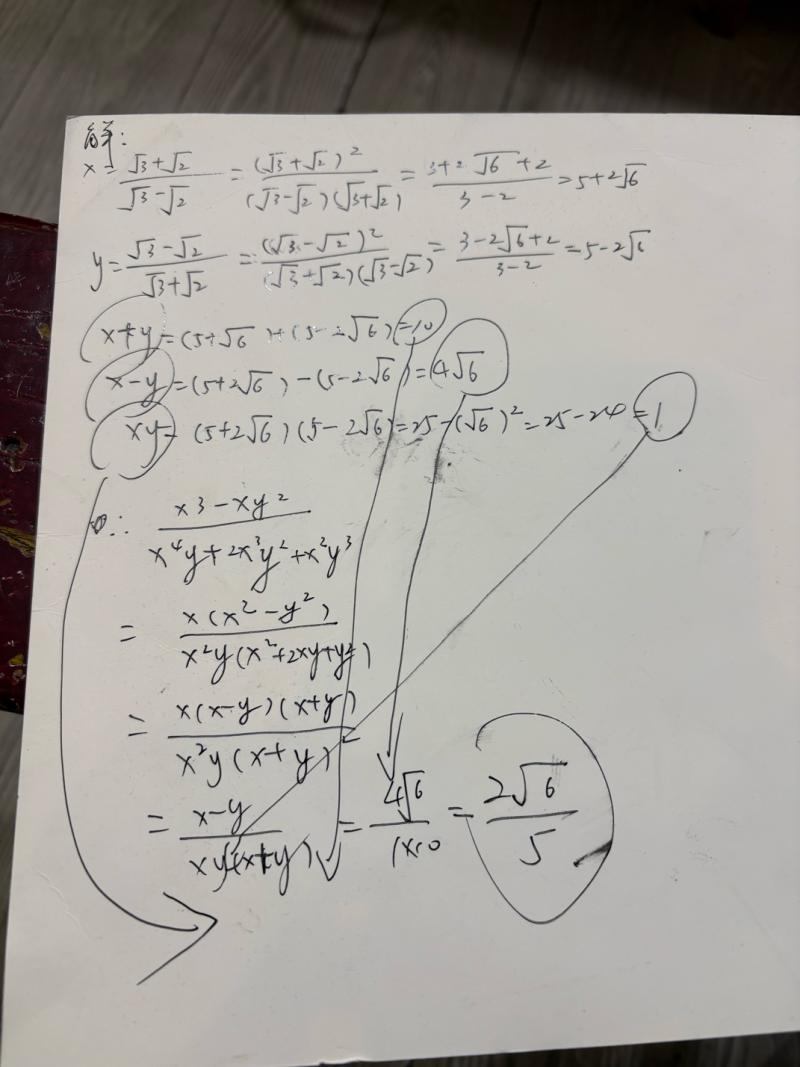 解:
x = (√3+√2)/(√3-√2) = (√3+√2)²/((√3-√2)(√3+√2)) = (3+2√6+2)/(3-2) = 5+2√6
y = (√3-√2)/(√3+√2) = (√3-√2)²/((√3+√2)(√3-√2)) = (3-2√6+2)/(3-2) = 5-2√6
x+y = (5+√6)+(5-2√6) = 10
x-y = (5+2√6)-(5-2√6) = 4√6
xy = (5+2√6)(5-2√6) = 25-(√6)² = 25-24 = 1
∴ (x3-xy²)/(x⁴y+2x³y²+x²y³)
= x(x²-y²)/(x²y(x²+2xy+y²))
= x(x-y)(x+y)/(x²y(x+y)²)
= (x-y)/(xy(x+y)) = 4√6/(1×10) = 2√6/5